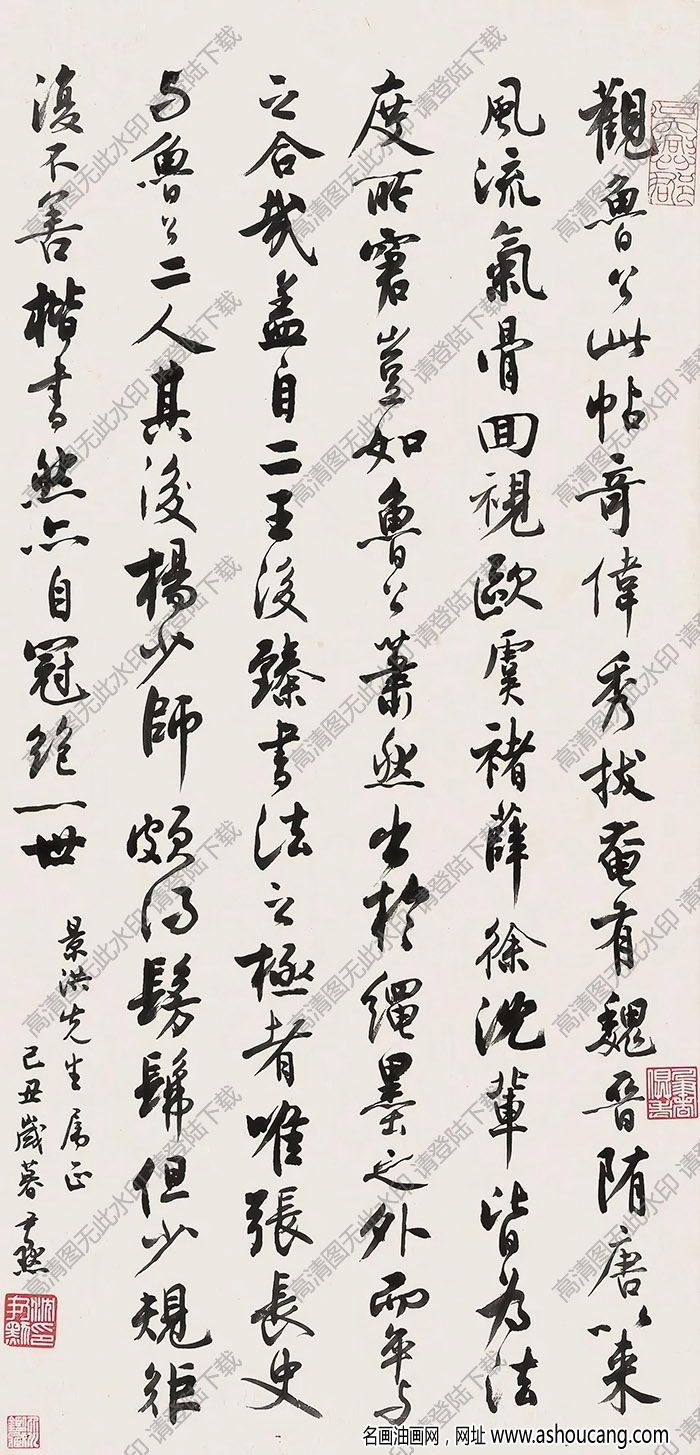 觀魯公此帖奇偉秀拔奄有魏晉隋唐以来
風流氣骨回視歐虞褚薛徐沈輩皆為法
度所窘豈如魯公蕭然出於繩墨之外而卒与
之合哉盖自二王後臻書法之極者唯張長史
与魯公二人其後楊少師頗得髣髴但少規矩
復不善楷書然亦自冠絕一世
景洪先生属正
己丑歲暮 尹默
高清图无此水印 请登陆下载
名画油画网，网址 www.ashoucang.com